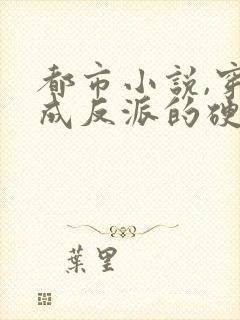 都市小説,穿
成反派的硬
葉里